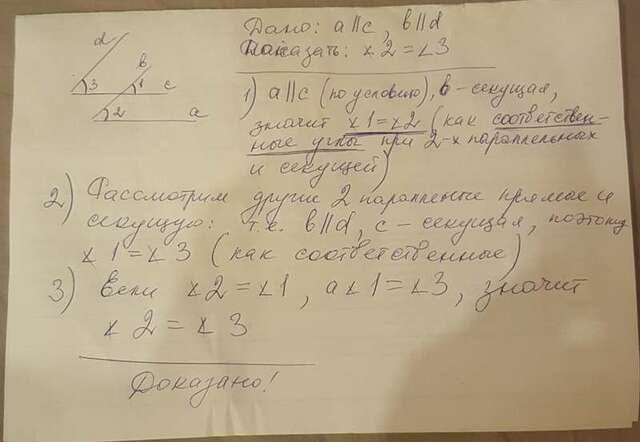 d
b
3
1
c
2
a
Дано: a||c, b||d
Доказать: ∠2=∠3
1) a||c (по условию), b-секущая,
значит ∠1=∠2 (как соответствен-
ные углы при 2-х параллельных
и секущей)
2) Рассмотрим другие 2 паралленые прямые и
секущую: т.к. b||d, c-секущая, поэтому
∠1=∠3 (как соответственные)
3) Если ∠2=∠1, а ∠1=∠3, значит
∠2=∠3
Доказано!